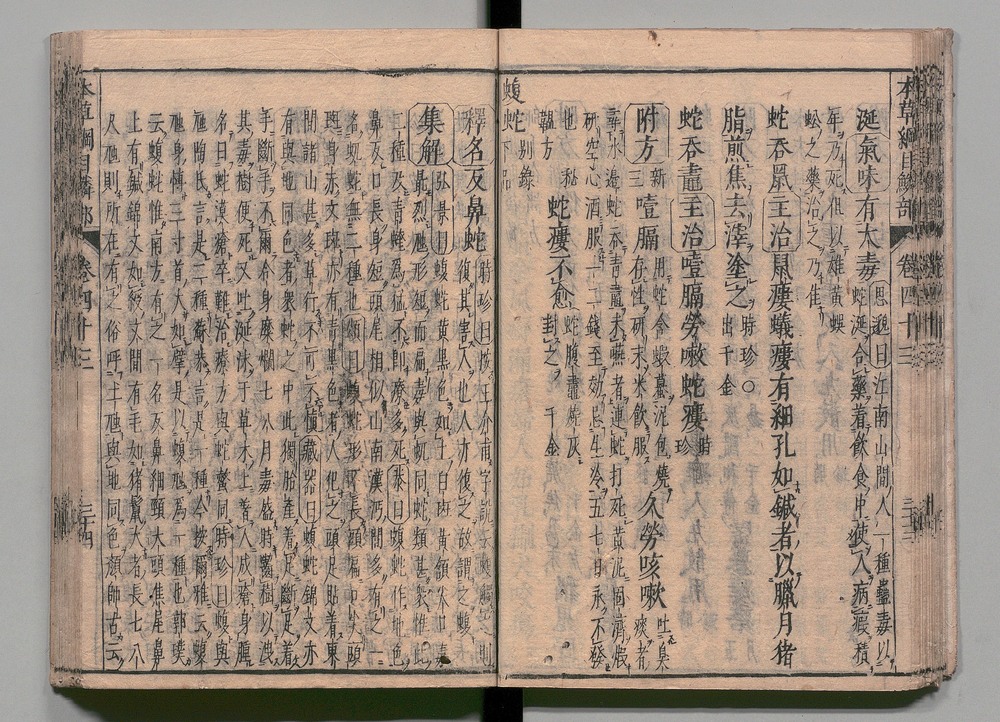 本草綱目鱗部 卷四十三 三十三
涎氣味有大毒 思邈曰江南山間人一種蠱毒以
蛇涎合藥着飲食中使人病瘕積
年乃死但以雄黃蜈
蚣之藥治之乃佳
蛇吞鼠主治鼠瘻蟻瘻有細孔如鍼者以臘月猪
脂煎焦去滓塗之 時珍○出千金
蛇吞鼃主治噎膈勞嗽蛇瘻 時珍
附方 新三 噎膈 用蛇含蝦蟇泥包燒存性研末米飲服 久勞咳嗽 吐臭痰者
尋水邊蛇吞青鼃未嚥者連蛇打死黃泥固濟煅
研空心酒服一二錢至効忌生冷五七日永不發
也秘韞方 蛇瘻不愈 蛇腹鼃燒灰封之 千金
蝮蛇 別録下品
釋名 反鼻蛇 時珍曰按王介甫字說云蝮觸之則
復其害人也人亦復之故謂之蝮
集解 弘景曰蝮蛇黃黑色如土白斑黃頷尖口毒
最烈虺形短而扁毒與蚖同蛇類甚衆惟此
二種及青蝰爲猛不即療多死恭曰蝮蛇作地色
鼻反口長身短頭尾相似山南漢沔間多有之一
名蚖蛇無二種也頌曰蝮蛇形不長頭扁口尖頭
斑身赤文斑亦有青黑色者人犯之頭足貼着東
間諸山甚多草行不可不慎藏器曰蝮蛇錦文亦
有與地同色者衆蛇之中此獨胎產着足斷足着
手斷手不爾合身糜爛七八月毒盛時齧樹以洩
其毒樹便死又吐涎沫于草木上着人成瘡身腫
名曰蛇漠瘡卒難治療方與蛇螫同時珍曰蝮與
虺陶氏言是二種蘇恭言是一種今按爾雅云蝮
虺身博三寸首大如擘是以蝮虺爲一種也郭璞
云蝮蛇惟南方有之一名反鼻細頸大頭焦尾鼻
上有鍼錦文如綬文間有毛如猪鬣大者長七八
尺虺則所在有之俗呼土虺與地同色顔師古云
本草綱目鱗部 卷四十三 三十四